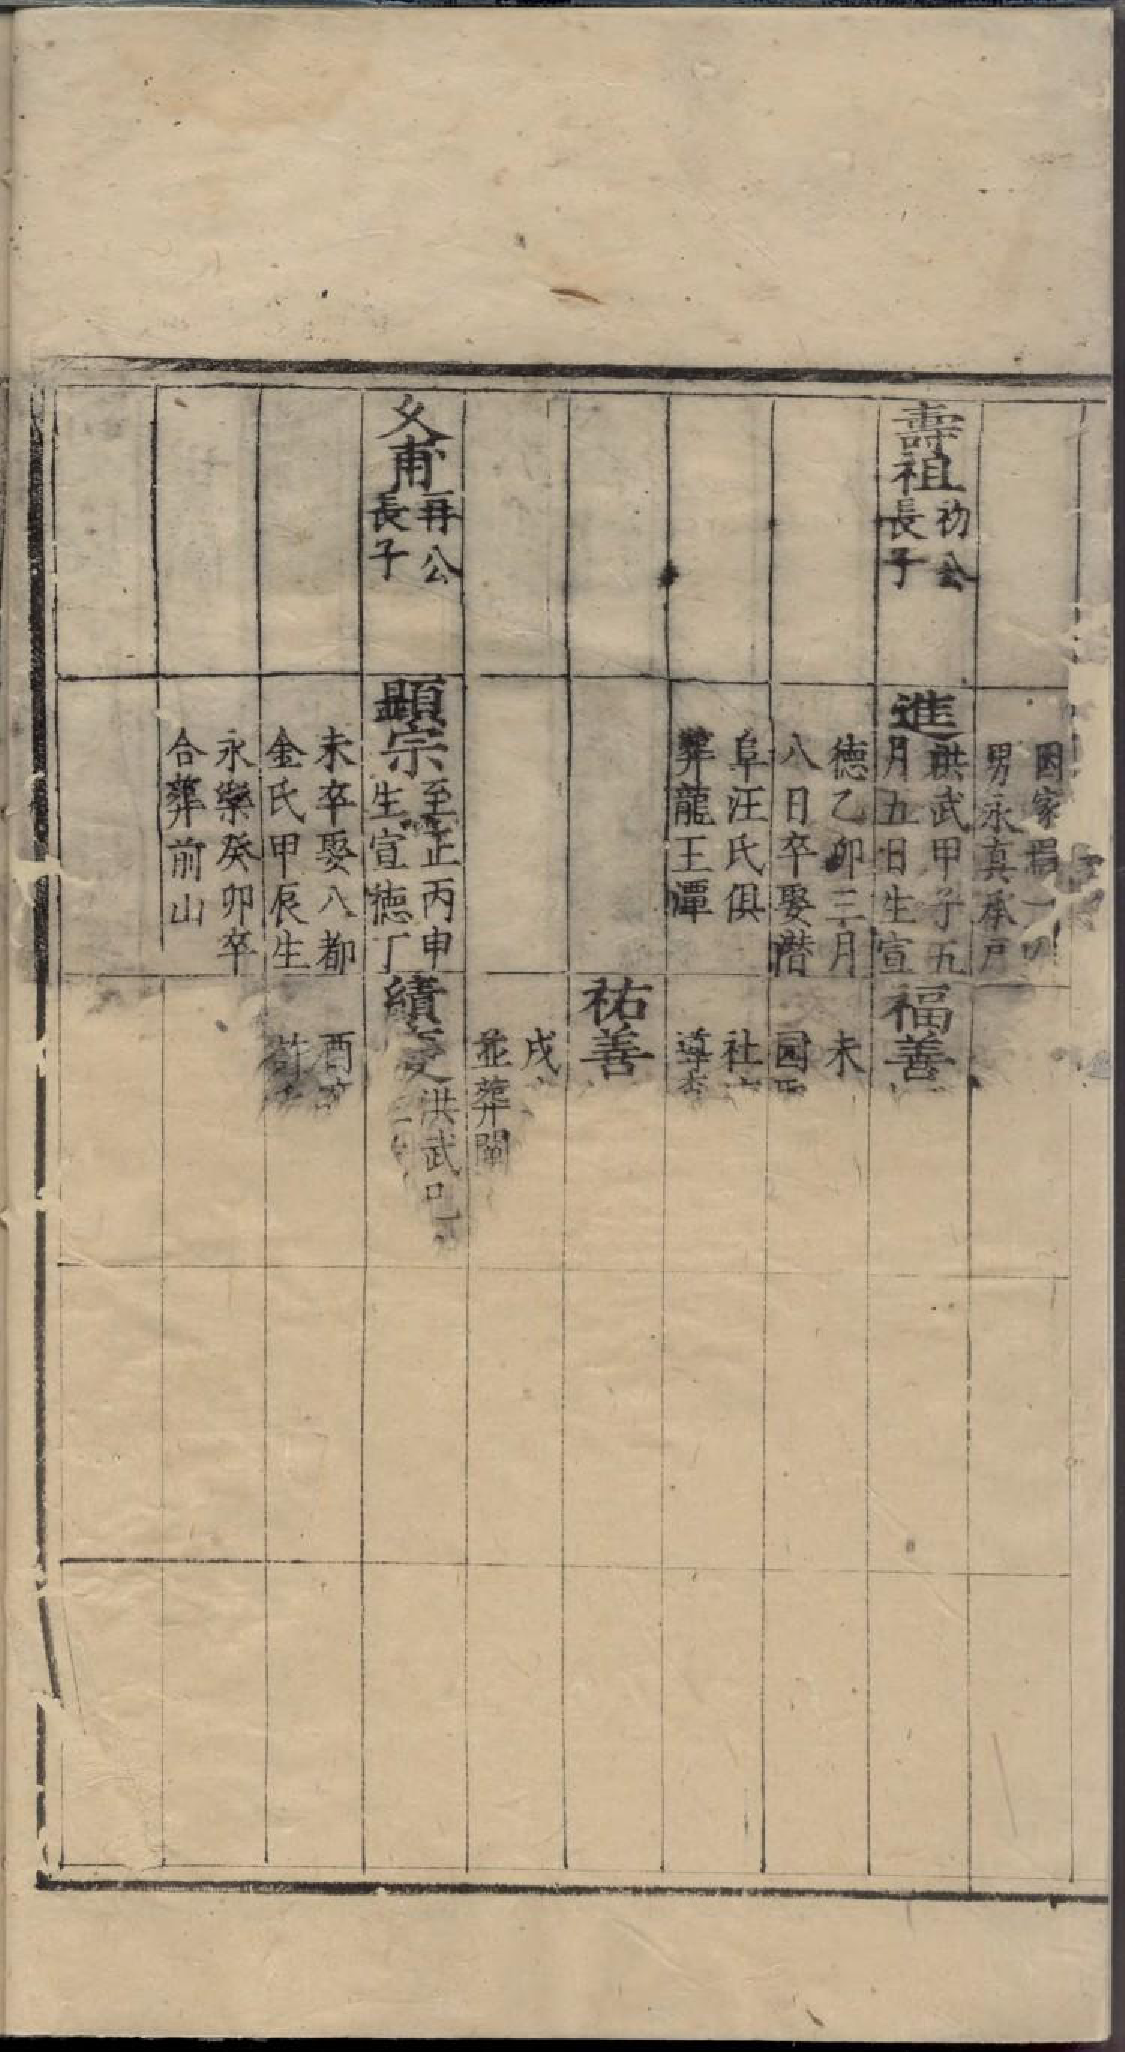 壽祖
初公
長子
因家
男永真承戶
進
洪武甲子五
月五日生宣
德乙卯三月
八日卒娶潜
阜汪氏俱
葬龍王潭
福善
未
社
祐善
戌
並葬
文甫
再公
長子
顯宗
至正丙申
生宣德丁
未卒娶八都
金氏甲辰生
永樂癸卯卒
合葬前山
績
洪武
酉
許